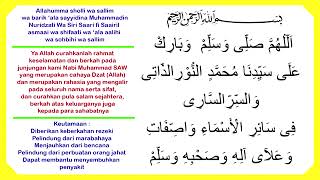 Allahumma sholli wa sallim
wa barik 'ala sayyidina Muhammadin
Nuridzati Wa Siri Saari fi Saairil
asmaai wa shifaati wa 'ala aalihi
wa sohbihi wa sallim
Ya Allah curahkanlah rahmat
keselamatan dan berkah pada
junjungan kami Nabi Muhammad SAW
yang merupakan cahaya Dzat (Allah)
dan merupakan rahasia yang mengalir
pada seluruh nama serta sifat,
dan curahkan pula salam sejahtera,
berkah atas keluarganya juga
kepada para sahabatnya
Keutamaan :
Diberikan keberkahan rezeki
Pelindung dari marabahaya
Menjauhkan dari bencana
Pelindung dari perbuatan orang jahat
Dapat membantu menyembuhkan
penyakit
بسم الله الرحمن الرحيم
اَللّٰهُمَّ صَلِّى وَسَلِّمْ وَبَارِكْ
عَلَى سَيِّدِنَا مُحَمَّدِ النُّوْرِ الذَّاتِى
وَالسِّرِّ السَّارِى
فِى سَائِرِ الْأَسْمَاءِ وَاصِّفَاتِ
وَعَلَاى آلِهِ وَصَحْبِهِ وَسَلِّمْ